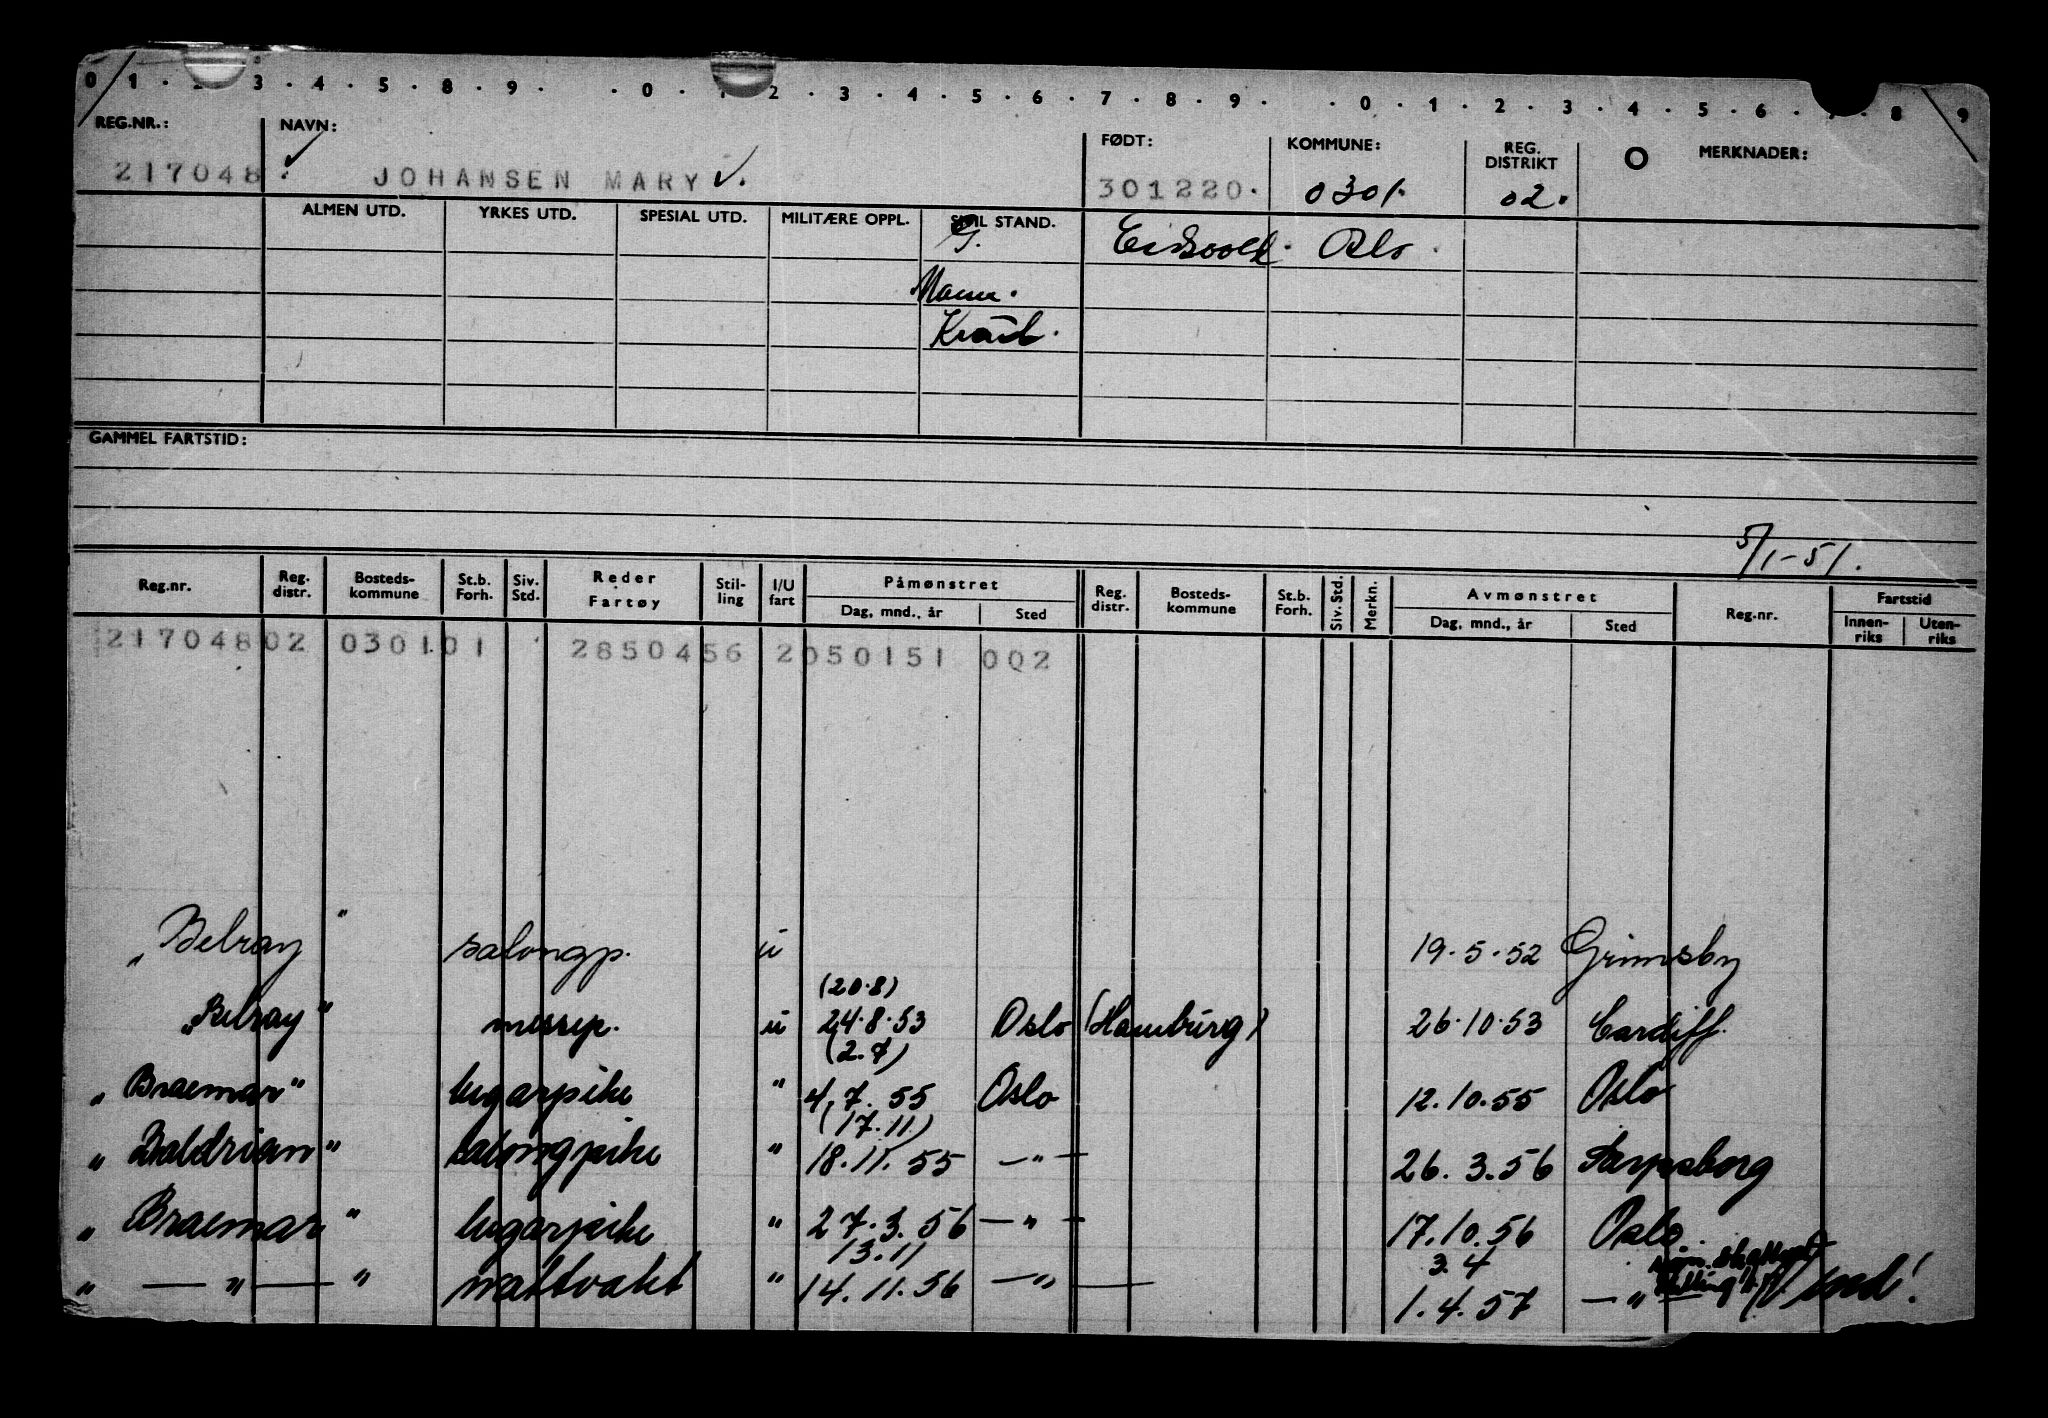 0 1 . 2 . 3 . 4 . 5 . 8 . 9 . . 0 . 1 . 2 . 3 . 4 . 5 . 6 . 7 . 8 . 9 . . 0 . 1 . 2 . 3 . 4 . 5 . 6 . 7 . 8 9
REG.NR.: NAVN: FØDT: KOMMUNE: REG. DISTRIKT O MERKNADER:
217048 JOHANSEN MARY 301220. 0301. 02.
ALMEN UTD. YRKES UTD. SPESIAL UTD. MILITÆRE OPPL. SIVIL STAND.
G. Eidsvold. Oslo.
GAMMEL FARTSTID:
5/1-51.
Reg.nr. Reg. distr. Bosteds-kommune St.b. Forh. Siv. Std. Reder Fartøy Stil-ling I/U fart Påmønstret Dag, mnd., år Sted Reg. distr. Bosteds-kommune St.b. Forh. Siv. Std. Merkn. Avmønstret Dag, mnd., år Sted Reg.nr. Fartstid Innen-riks Uten-riks
217048 02 0301 01 2850456 2050151 002
„Belray" salongp. u 19.5.52 Grimsby
(20.8)
„Belray" messep. u 24.8.53 Oslo (Hamburg) 26.10.53 Cardiff.
(2.7)
„Braemar" lugarpike " 4.7.55 Oslo 12.10.55 Oslo
(17.11)
„Baldrian" salongpike " 18.11.55 —"— 26.3.56 Sarpsborg
„Braemar" lugarpike " 27.3.56 —"— 17.10.56 Oslo
13.11 3.4
„ — " — " nattvakt " 14.11.56 —"— 1.4.57 —"— Vend!